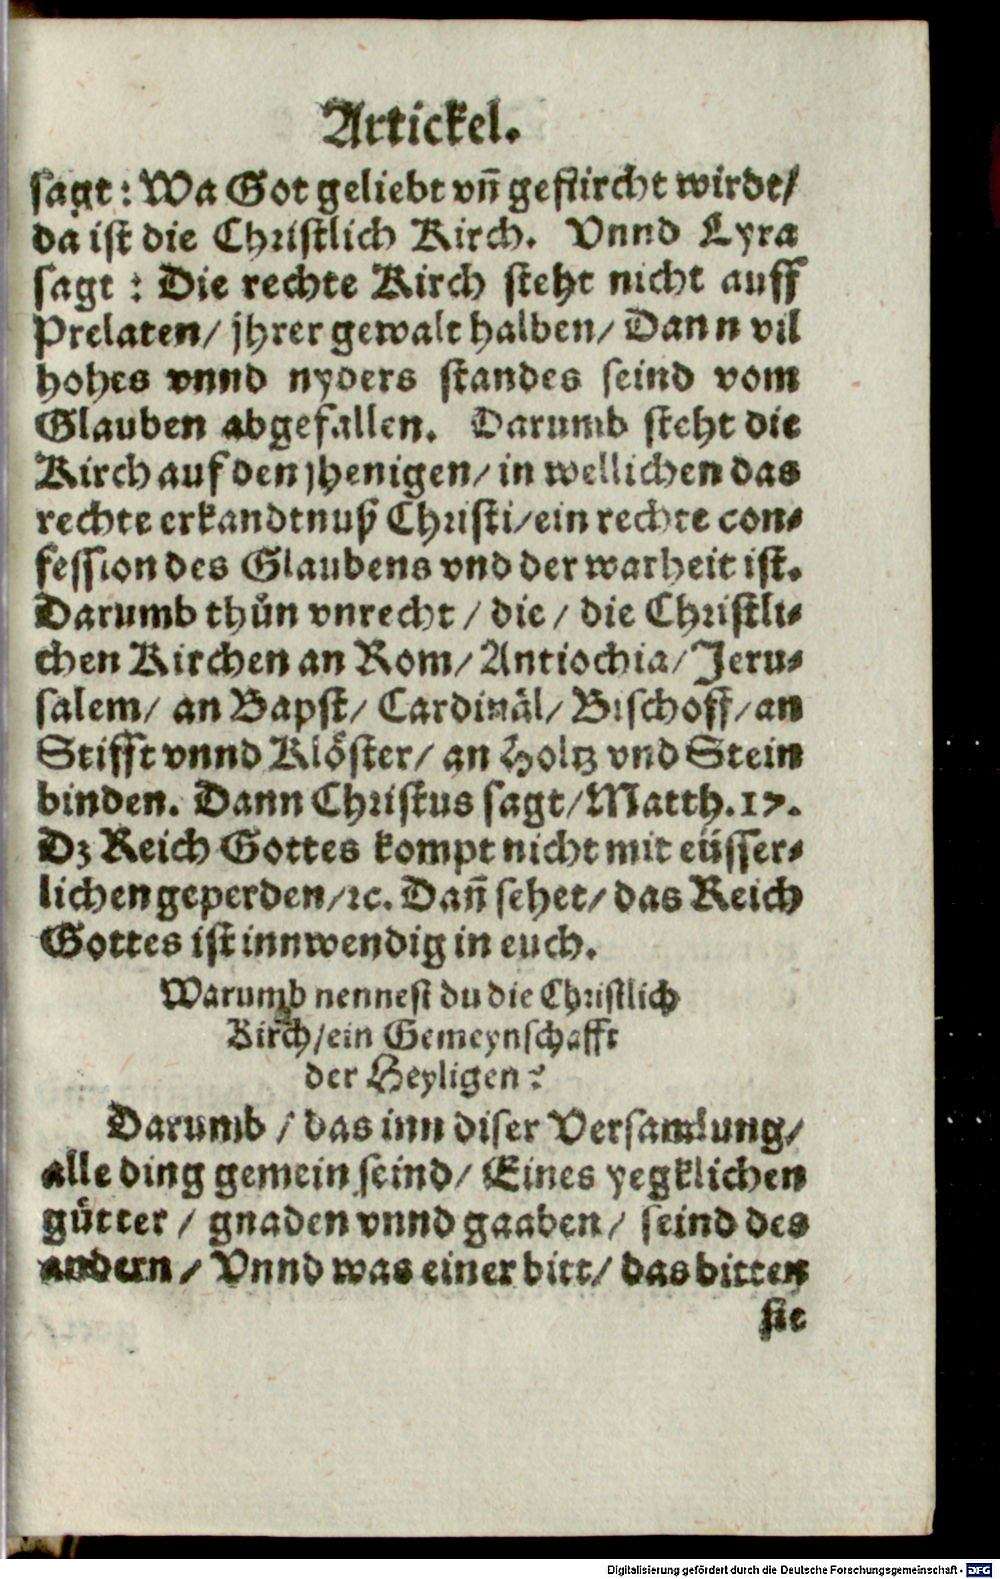 Artickel.
sagt: Wa Got geliebt vñ geflircht wirdt/
da ist die Christlich Kirch. Vnnd Lyra
sagt: Die rechte Kirch steht nicht auff
Prelaten/ jhrer gewalt halben/ Dann vil
hohes vnnd nyders standes seind vom
Glauben abgefallen. Darumb steht die
Kirch auf den jhenigen/ in wellichen das
rechte erkandtnuß Christi/ ein rechte con-
fession des Glaubens vnd der warheit ist.
Darumb thůn vnrecht / die / die Christli-
chen Kirchen an Rom/ Antiochia/ Jeru-
salem/ an Bapst/ Cardinäl/ Bischoff/ an
Stifft vnnd Klöster/ an Holtz vnd Stein
binden. Dann Christus sagt/ Matth. 17.
Dz Reich Gottes kompt nicht mit eüsser-
lichen geperden/ ꝛc. Dañ sehet/ das Reich
Gottes ist innwendig in euch.
Warumb nennest du die Christlich
Kirch/ ein Gemeynschafft
der Heyligen?
Darumb / das inn diser Versamlung/
alle ding gemein seind/ Eines yegklichen
gütter / gnaden vnnd gaaben/ seind des
andern / Vnnd was einer bitt/ das bitten
sie
Digitalisierung gefördert durch die Deutsche Forschungsgemeinschaft - DFG